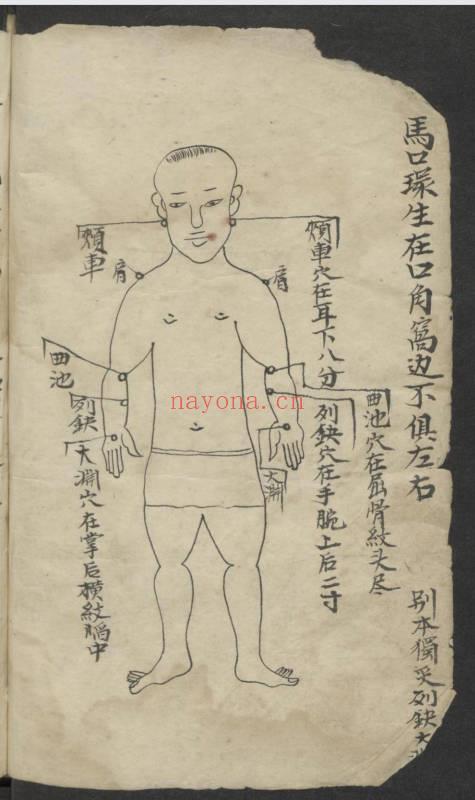 馬口環生在口角窩边不俱左右
别本獨灸列缺太
曲池穴在屈骨紋头尽
頰車穴在耳下八分
列缺穴在手腕上后二寸
太淵
肩
肩
頰車
曲池
列缺
太淵穴在掌后橫紋陷中
nayona.cn